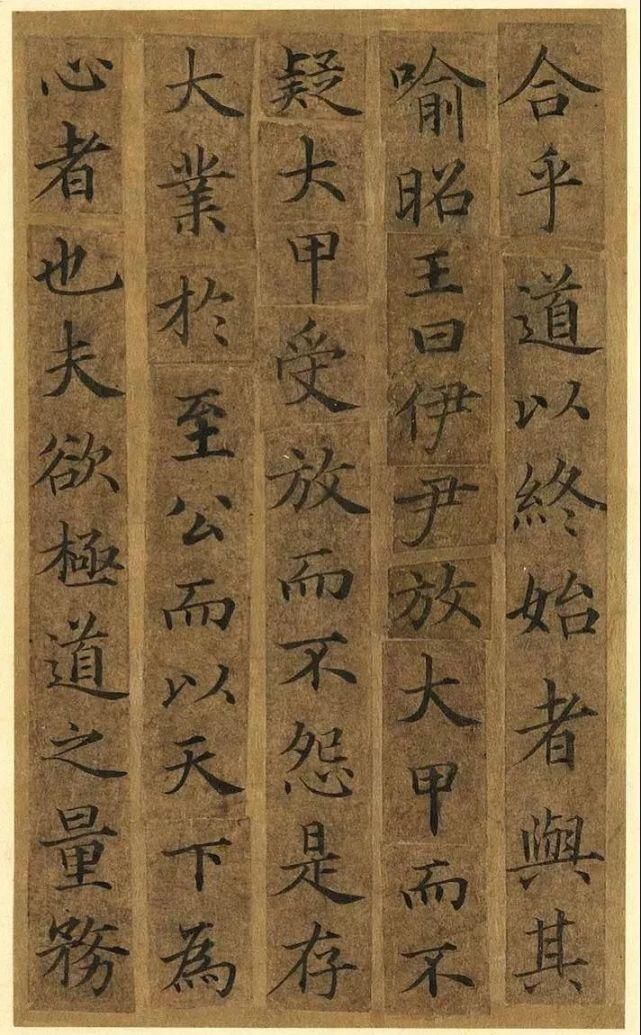 合乎道以終始者與其
喻昭王曰伊尹放大甲而不
疑大甲受放而不怨是存
大業於至公而以天下為
心者也夫欲極道之量務